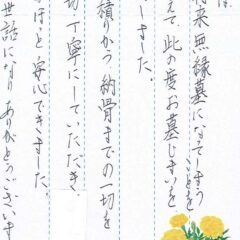 は、
将来無縁墓になってしまうことを
えて、此の度お墓じまいを
しました。
積りから納骨までの一切を
切丁寧にしていただき
ほっと安心できました。
世話になりありがとうございま